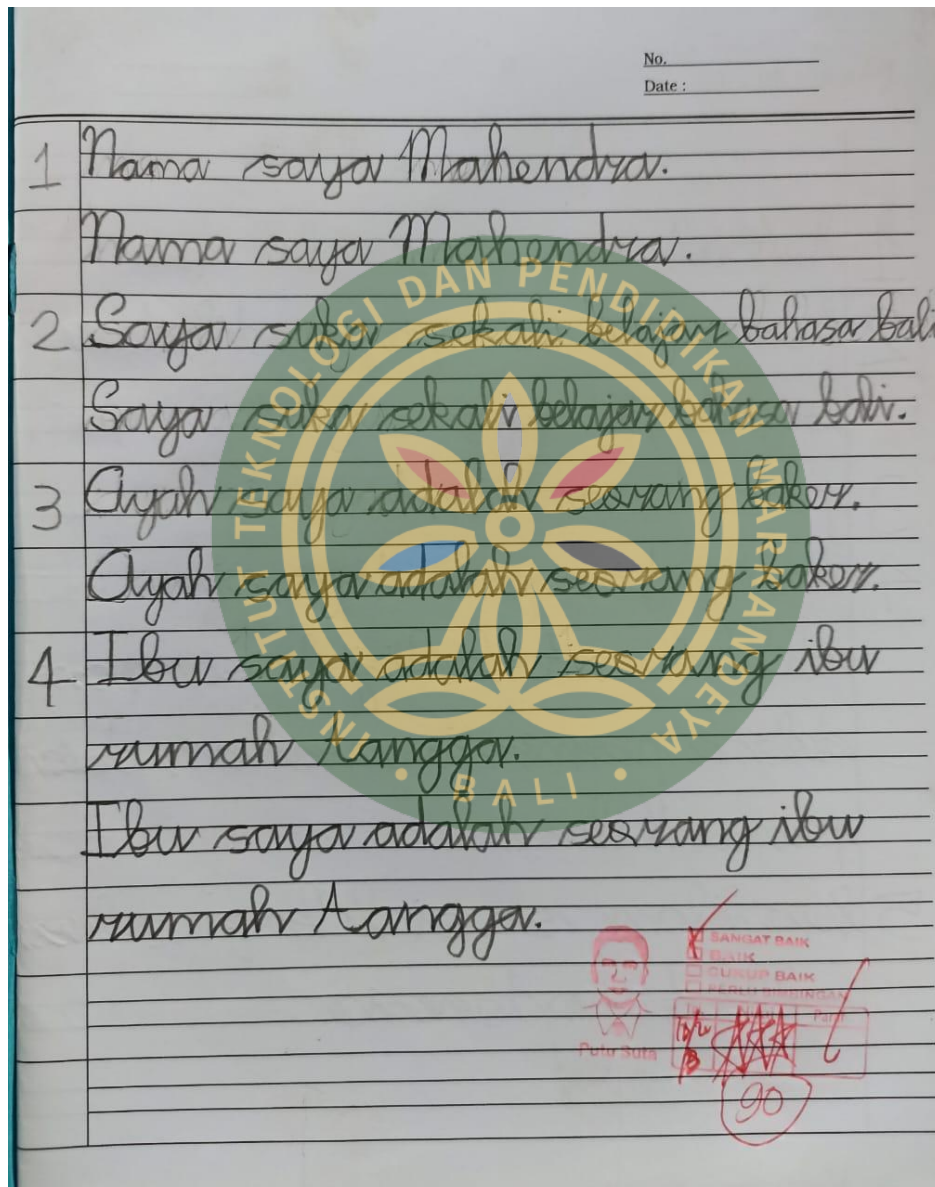 No.
Date :
1 Nama saya Mahendra.
Nama saya Mahendra.
2 Saya suka sekali belajar bahasa bali
Saya suka sekali belajar bahasa bali.
3 Ayah saya adalah seorang baker.
Ayah saya adalah seorang baker.
4 Ibu saya adalah seorang ibu
rumah tangga.
Ibu saya adalah seorang ibu
rumah tangga.
INSTITUT TEKNOLOGI DAN PENDIDIKAN MARKANDEYA
• BALI •
SANGAT BAIK
BAIK
CUKUP BAIK
PERLU BIMBINGAN
Nilai Paraf
Putu Suta
90